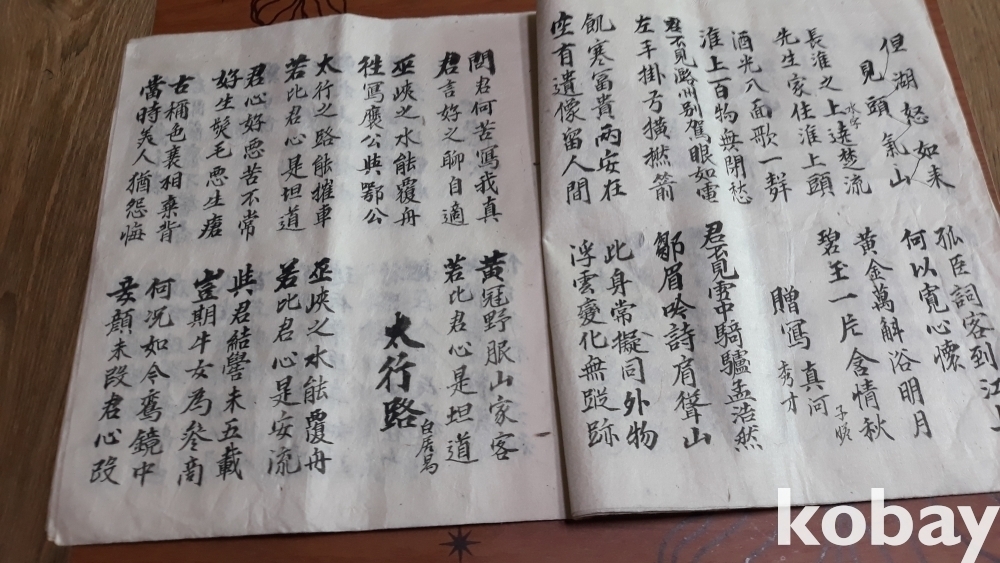 但見湖頭怒氣如山來
孤臣詞客到江上
何以寬心懷
長淮之上遶楚流
水字
先生家住淮上頭
黃金萬斛浴明月
碧玉一片含情秋
酒光八面歌一群
淮上百物無閑愁
贈寫真何秀才
子瞻
君不見潞州別駕眼如電
左手掛弓橫撚箭
君不見雪中騎驢孟浩然
皺眉吟詩肩聳山
飢寒富貴兩安在
座有遺像留人間
此身常擬同外物
浮雲變化無蹤跡
問君何苦寫我真
君言好之聊自適
黃冠野服山家客
若比君心是坦道
巫峽之水能覆舟
往寫褒公與鄂公
太行路
白居易
太行之路能摧車
若比君心是坦道
巫峽之水能覆舟
若比君心是安流
君心好惡苦不常
好生髮毛惡生瘡
與君結髮未五載
豈期牛女為參商
古稱色衰相棄背
當時美人猶怨悔
何況如今鸞鏡中
妾顏未改君心改
kobay